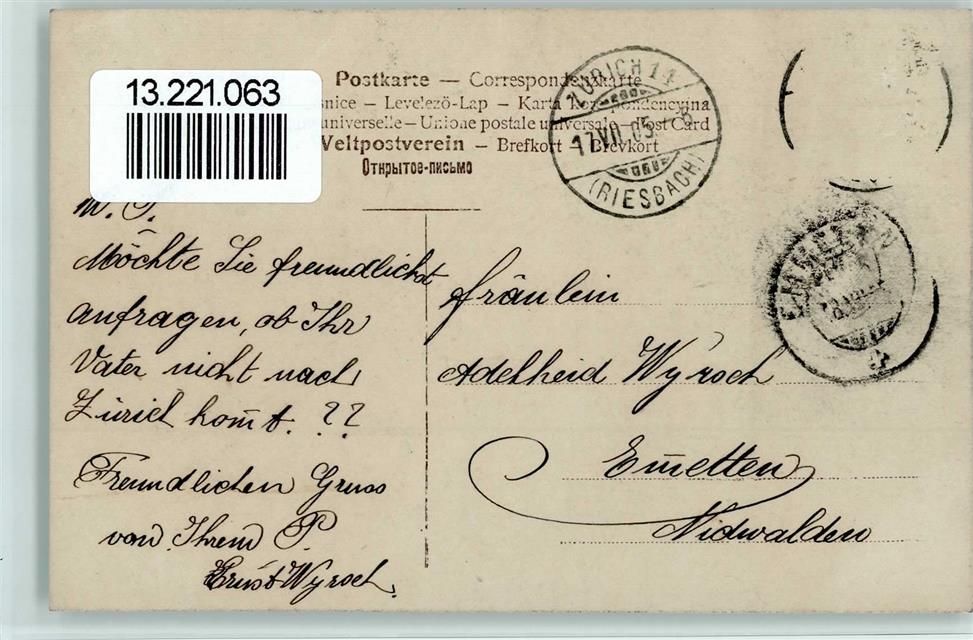 13.221.063
Postkarte — Correspondenzkarte
snice – Levelező-Lap – Karta korespondencyjna
universelle – Unione postale universale – Post Card
Weltpostverein – Brefkort – Brevkort
Открытое-письмо
ZÜRICH 14
17.VII.05.–8
(RIESBACH)
EMMETEN
W. P.
Möchte Sie freundlichst
anfragen, ob Ihr
Vater nicht nach
Zürich kom̄t. ??
Freundlichen Gruss
von Ihrem P.
Ernst Wyrsch.
Fräulein
Adelheid Wyrsch
Em̄etten
Nidwalden